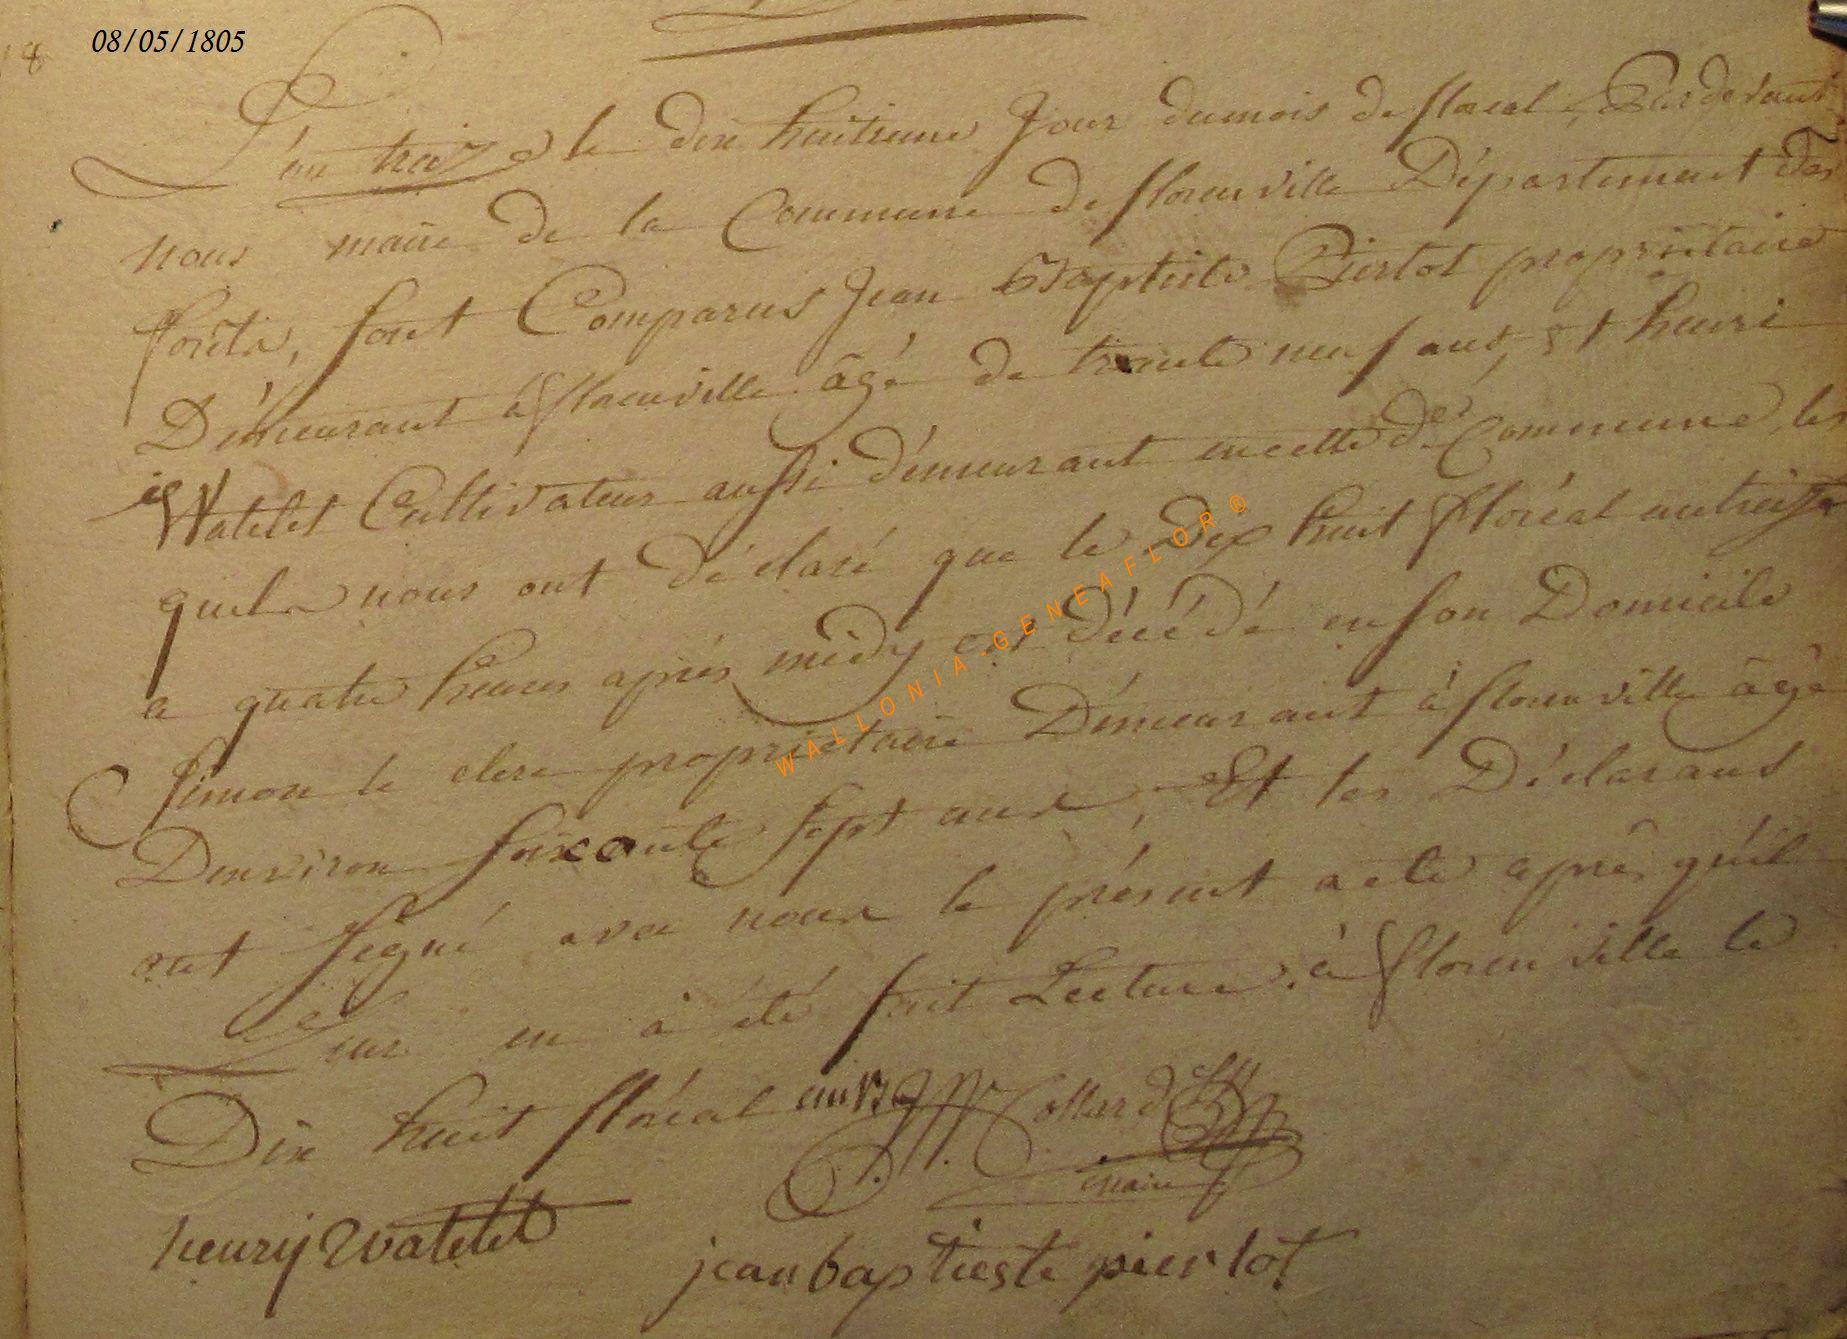 18
08/05/1805
L'an treize le dix huitieme Jour du mois de floreal, Pardevant
nous maire de la Commune de florenville Département des
forêts, sont Comparus Jean Baptiste Pierlot propriétaire
Démeurant à florenville âgé de trente neuf ans, et henri
Watelet Cultivateur aussi démeurant en cette de Commune les
quels nous ont déclaré que le Dix huit floréal an treize
a quatre heures après midy est décédé en son Domicile
Simon le clerc propriétaire Démeurant à florenville âgé
Denviron soixante sept ans, Et les Déclarans
ont signé avec nous le présent acte après qu'il
Leur en à été fait Lecture. à florenville le
Dix huit floréal an 13 Collard
maire
henrij watelet
jean baptieste pierlot
WALLONIA-GENEAFLOR®